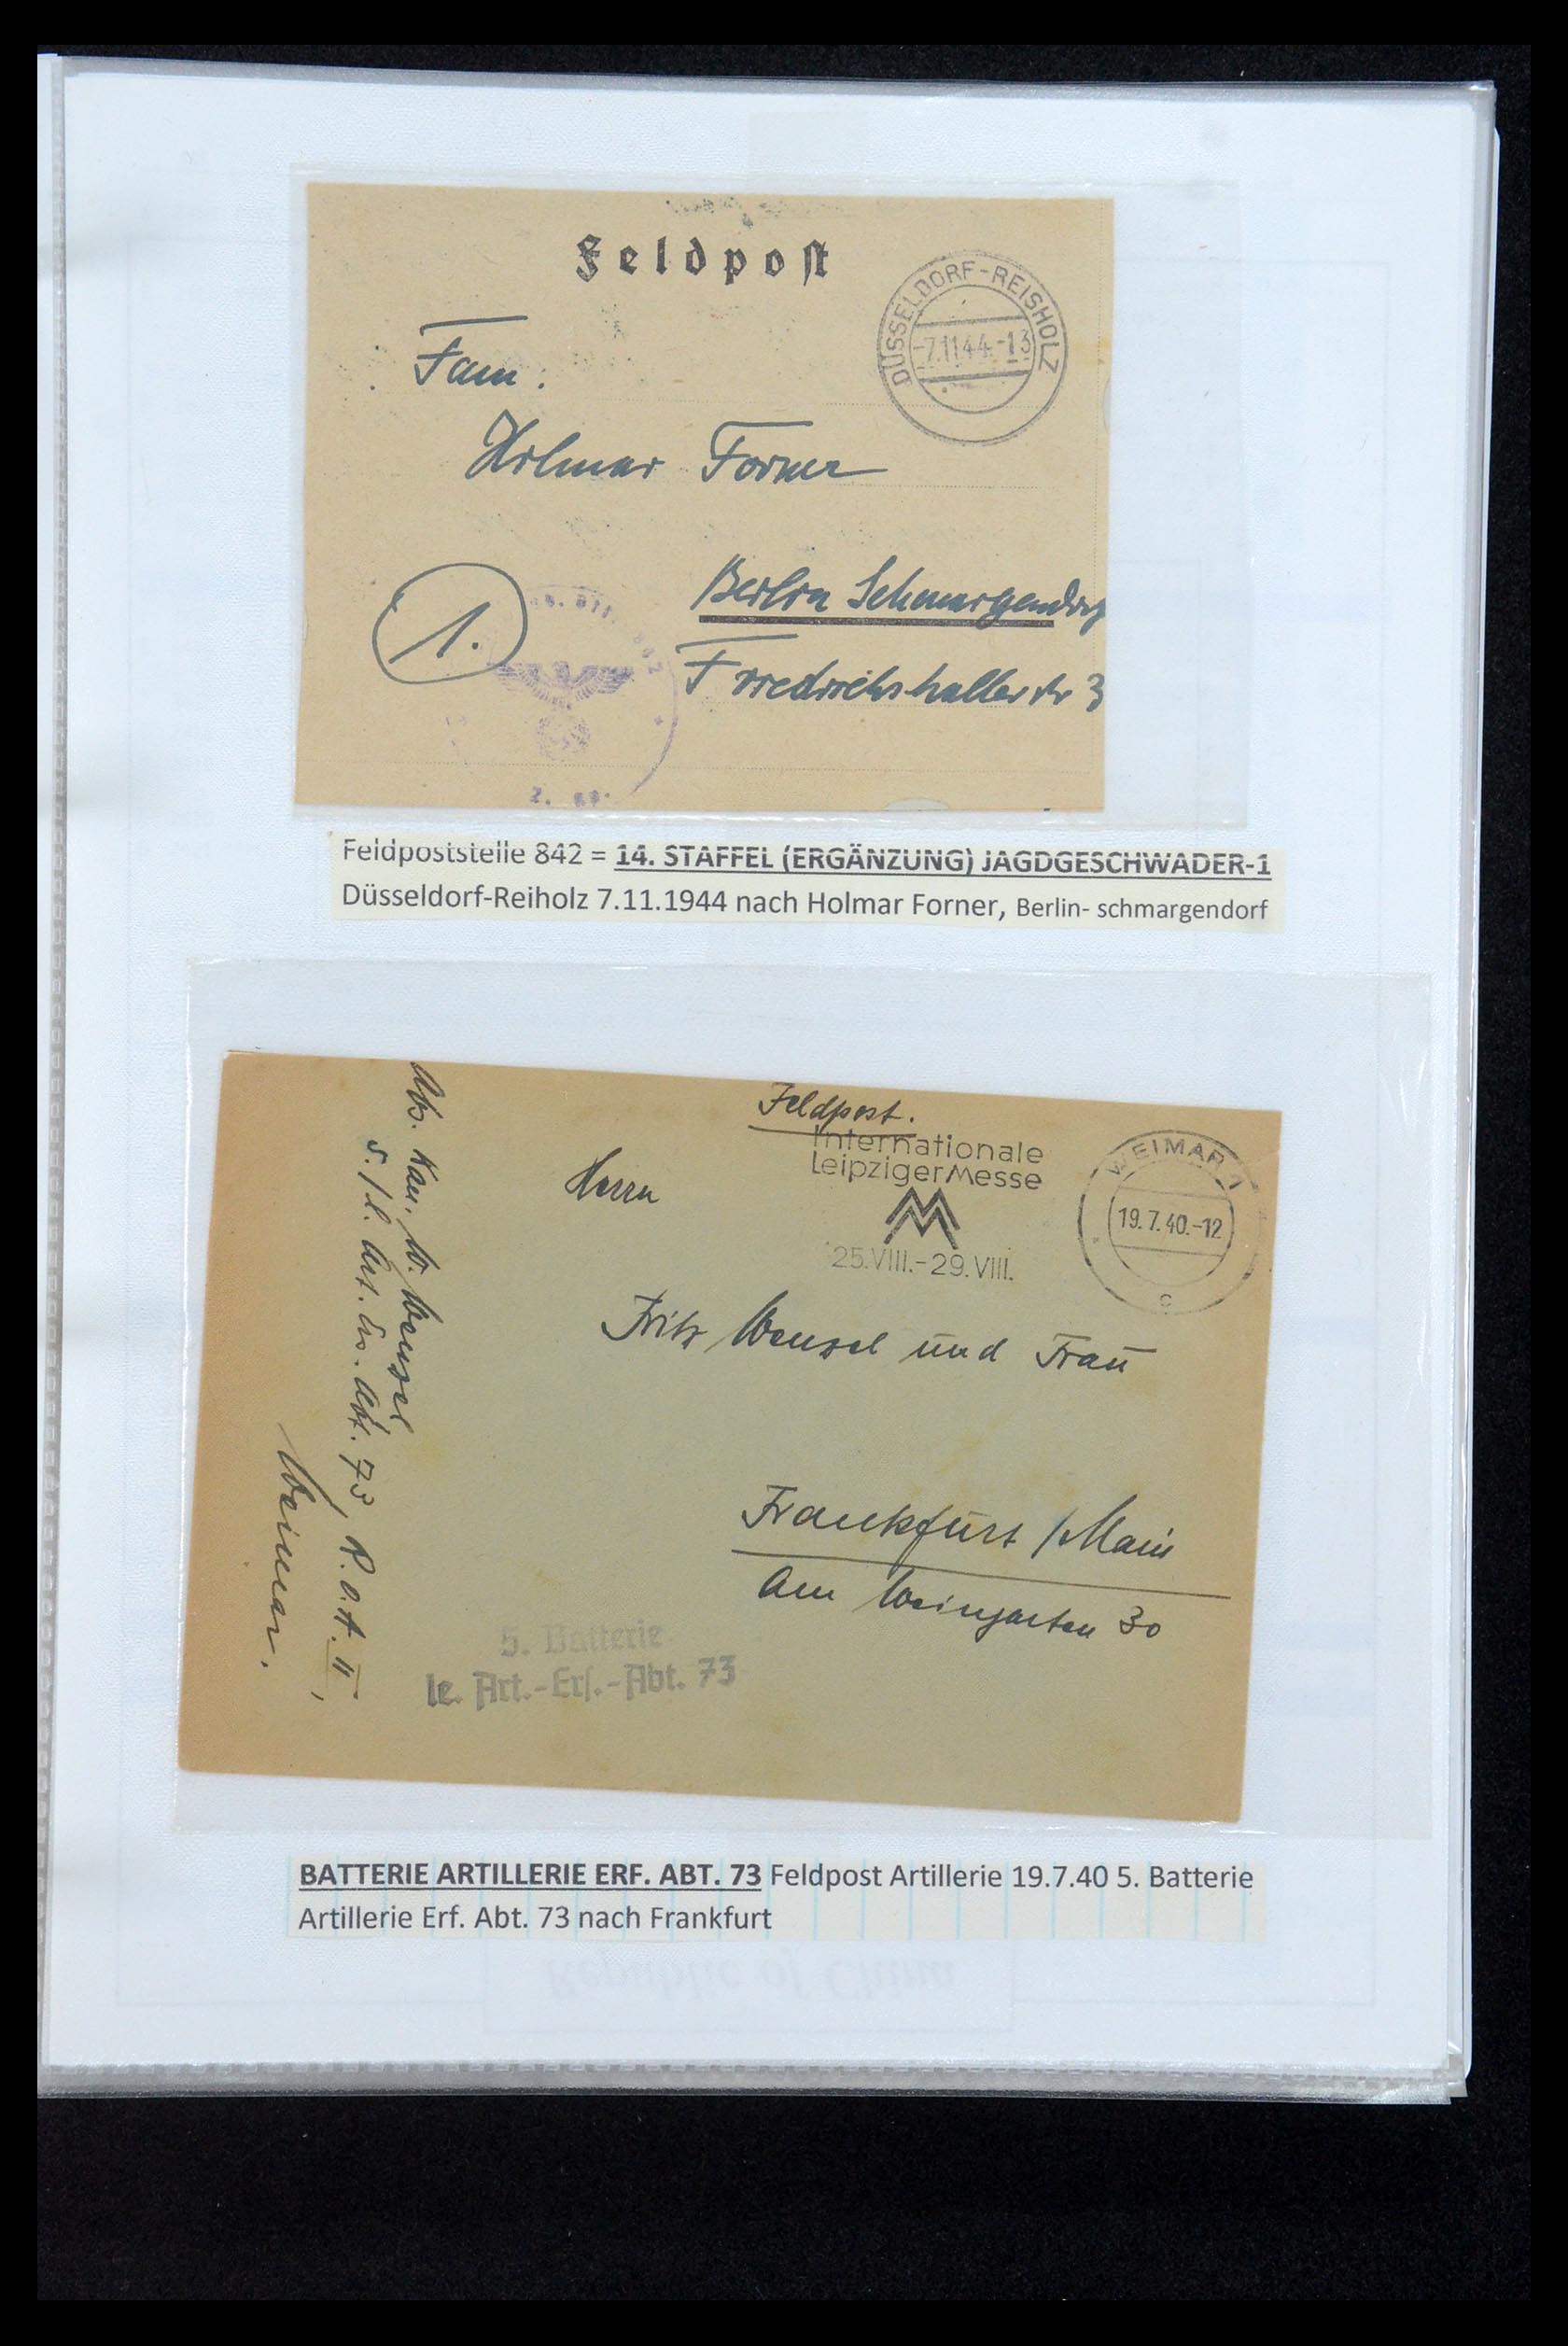 Feldpost
DÜSSELDORF-REISHOLZ
-7.11.44.-13
Fam.
Holmar Forner
Berlin Schmargendorf
1.
Friedrichshallerstr 3
842
2.
Feldpoststelle 842 = 14. STAFFEL (ERGÄNZUNG) JAGDGESCHWADER-1
Düsseldorf-Reiholz 7.11.1944 nach Holmar Forner, Berlin- schmargendorf
Feldpost.
Internationale
Leipziger Messe
25.VIII.-29.VIII.
WEIMAR 1
19.7.40.-12
c
Herrn
Fritz Wensel und Frau
Frankfurt /Main
Am Weingarten 30
Abs. Kan. W. Wensel
5./l. Art. Ers. Abt. 73, R.O.A. II,
Weimar.
5. Batterie
le. Art.-Erſ.-Abt. 73
BATTERIE ARTILLERIE ERF. ABT. 73 Feldpost Artillerie 19.7.40 5. Batterie
Artillerie Erf. Abt. 73 nach Frankfurt
Republic of China